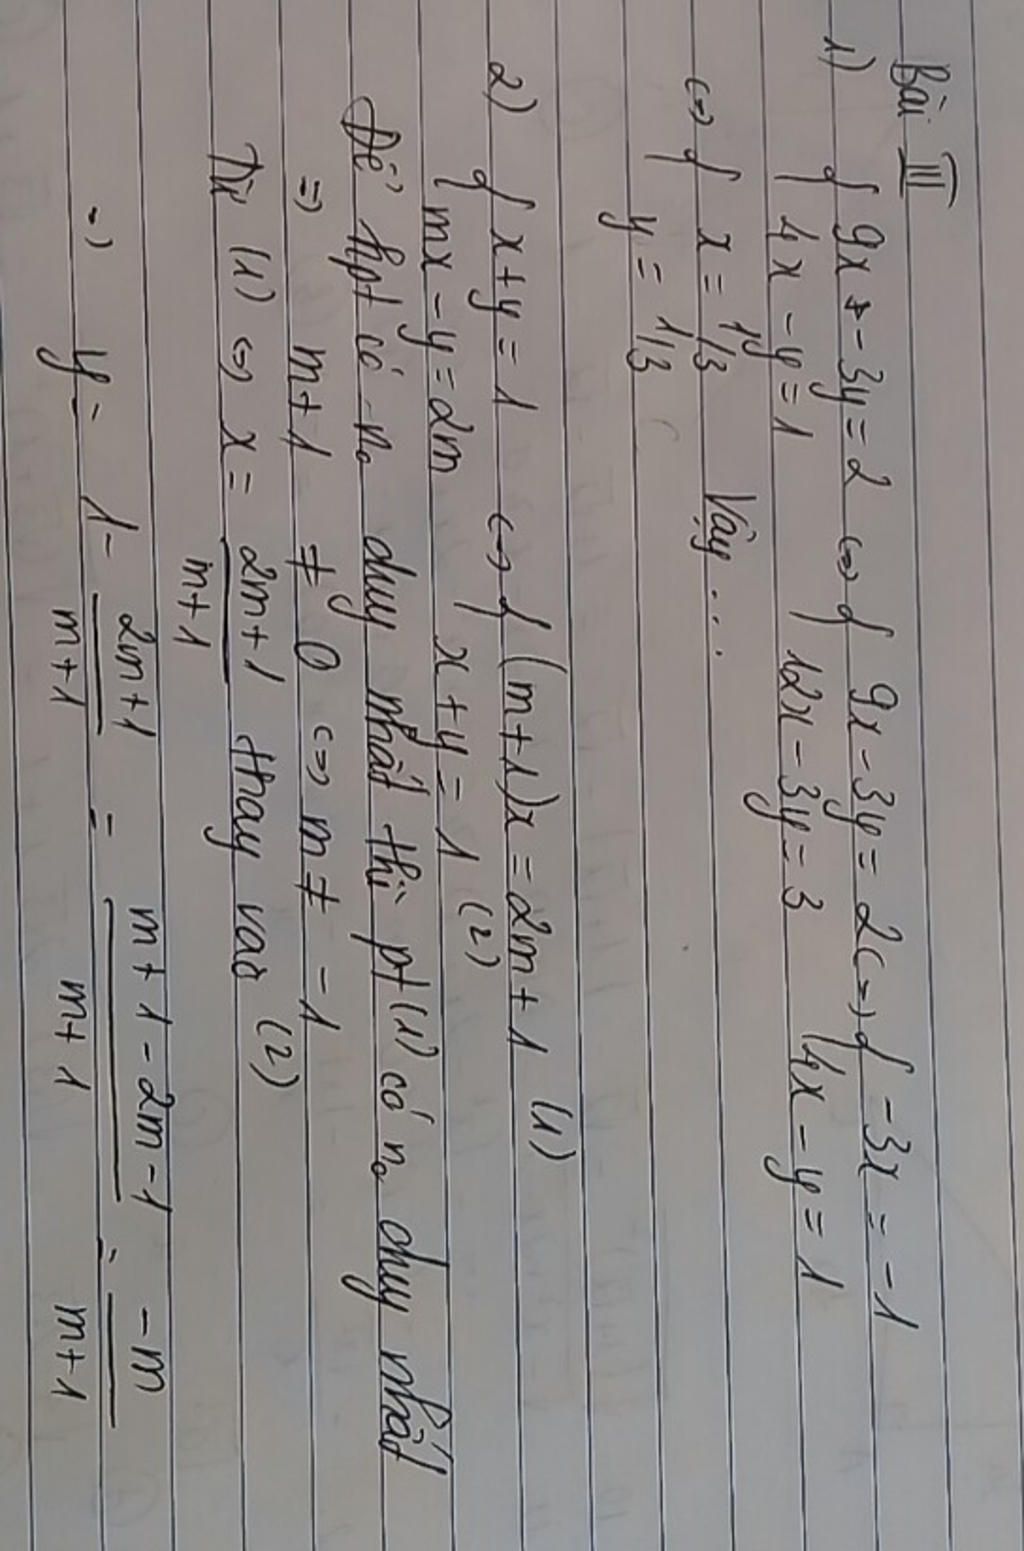 Bài III
1) { 9x - 3y = 2 <=> { 9x - 3y = 2 <=> { -3x = -1
4x - y = 1 12x - 3y = 3 4x - y = 1
<=> { x = 1/3 Vậy ...
y = 1/3
2) { x + y = 1 <=> { (m+1)x = 2m + 1 (1)
mx - y = 2m x + y = 1 (2)
Để hpt có no duy nhất thì pt (1) có no duy nhất
=> m + 1 ≠ 0 <=> m ≠ -1
Từ (1) <=> x = 2m+1/m+1 thay vào (2)
=> y = 1 - 2m+1/m+1 = m+1-2m-1/m+1 = -m/m+1